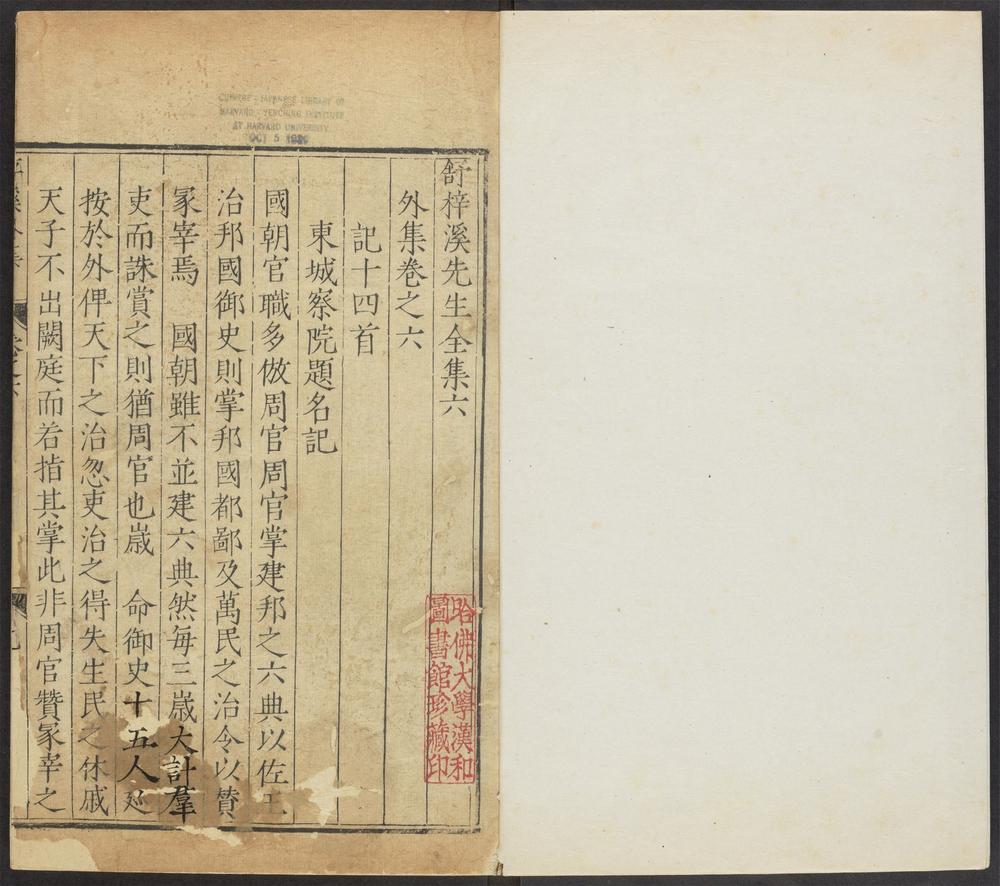 CHINESE - JAPANESE LIBRARY OF
HARVARD - YENCHING INSTITUTE
AT HARVARD UNIVERSITY
OCT 5
舒梓溪先生全集六
外集卷之六
記十四首
東城察院題名記
國朝官職多倣周官周官掌建邦之六典以佐王
治邦國御史則掌邦國都鄙及萬民之治令以贊
冢宰焉　國朝雖不並建六典然每三歲大計羣
吏而誅賞之則猶周官也歲　命御史十五人廵
按於外俾天下之治忽吏治之得失生民之休戚
天子不出闕庭而若指其掌此非周官贊冢宰之
哈佛大學漢和
圖書館珍藏印